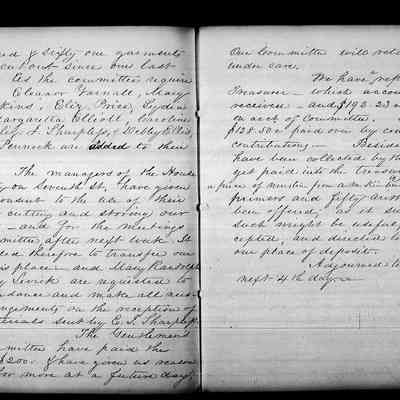 ed & sixty one garments
cut out since our last
As the committee require
Eleanor Yarnall, Mary
kins, Eliz. Price, Lydia
Margaretta Elliott, Caroline
A. Sharpless, & Debby Ellis,
Pennock are added to their
The managers of the House
on Seventh St. have given
consent to the use of their
cutting and storing our
and for the meetings
mittee, after next week. It
ded therefore to transfer our
place and Mary Randolph
are requested to
dance and make all nec
angements on the reception of
erials sent by E. J. Sharpless
The Gentlemens
mittee have paid the
$200. & have given us reason
for more at a future day,
Our Committee will
under care.
We have
Treasurer - which
received - and $193.23
on acct of Committee.
$128.50 paid over by
contributing
have been collected by the
yet paid into the treasu
a piece of muslin from
primers and fifty
been offered, as it
such might be useful
cepted, and directed to
our place of deposit.
Adjourned to
next 4th day.